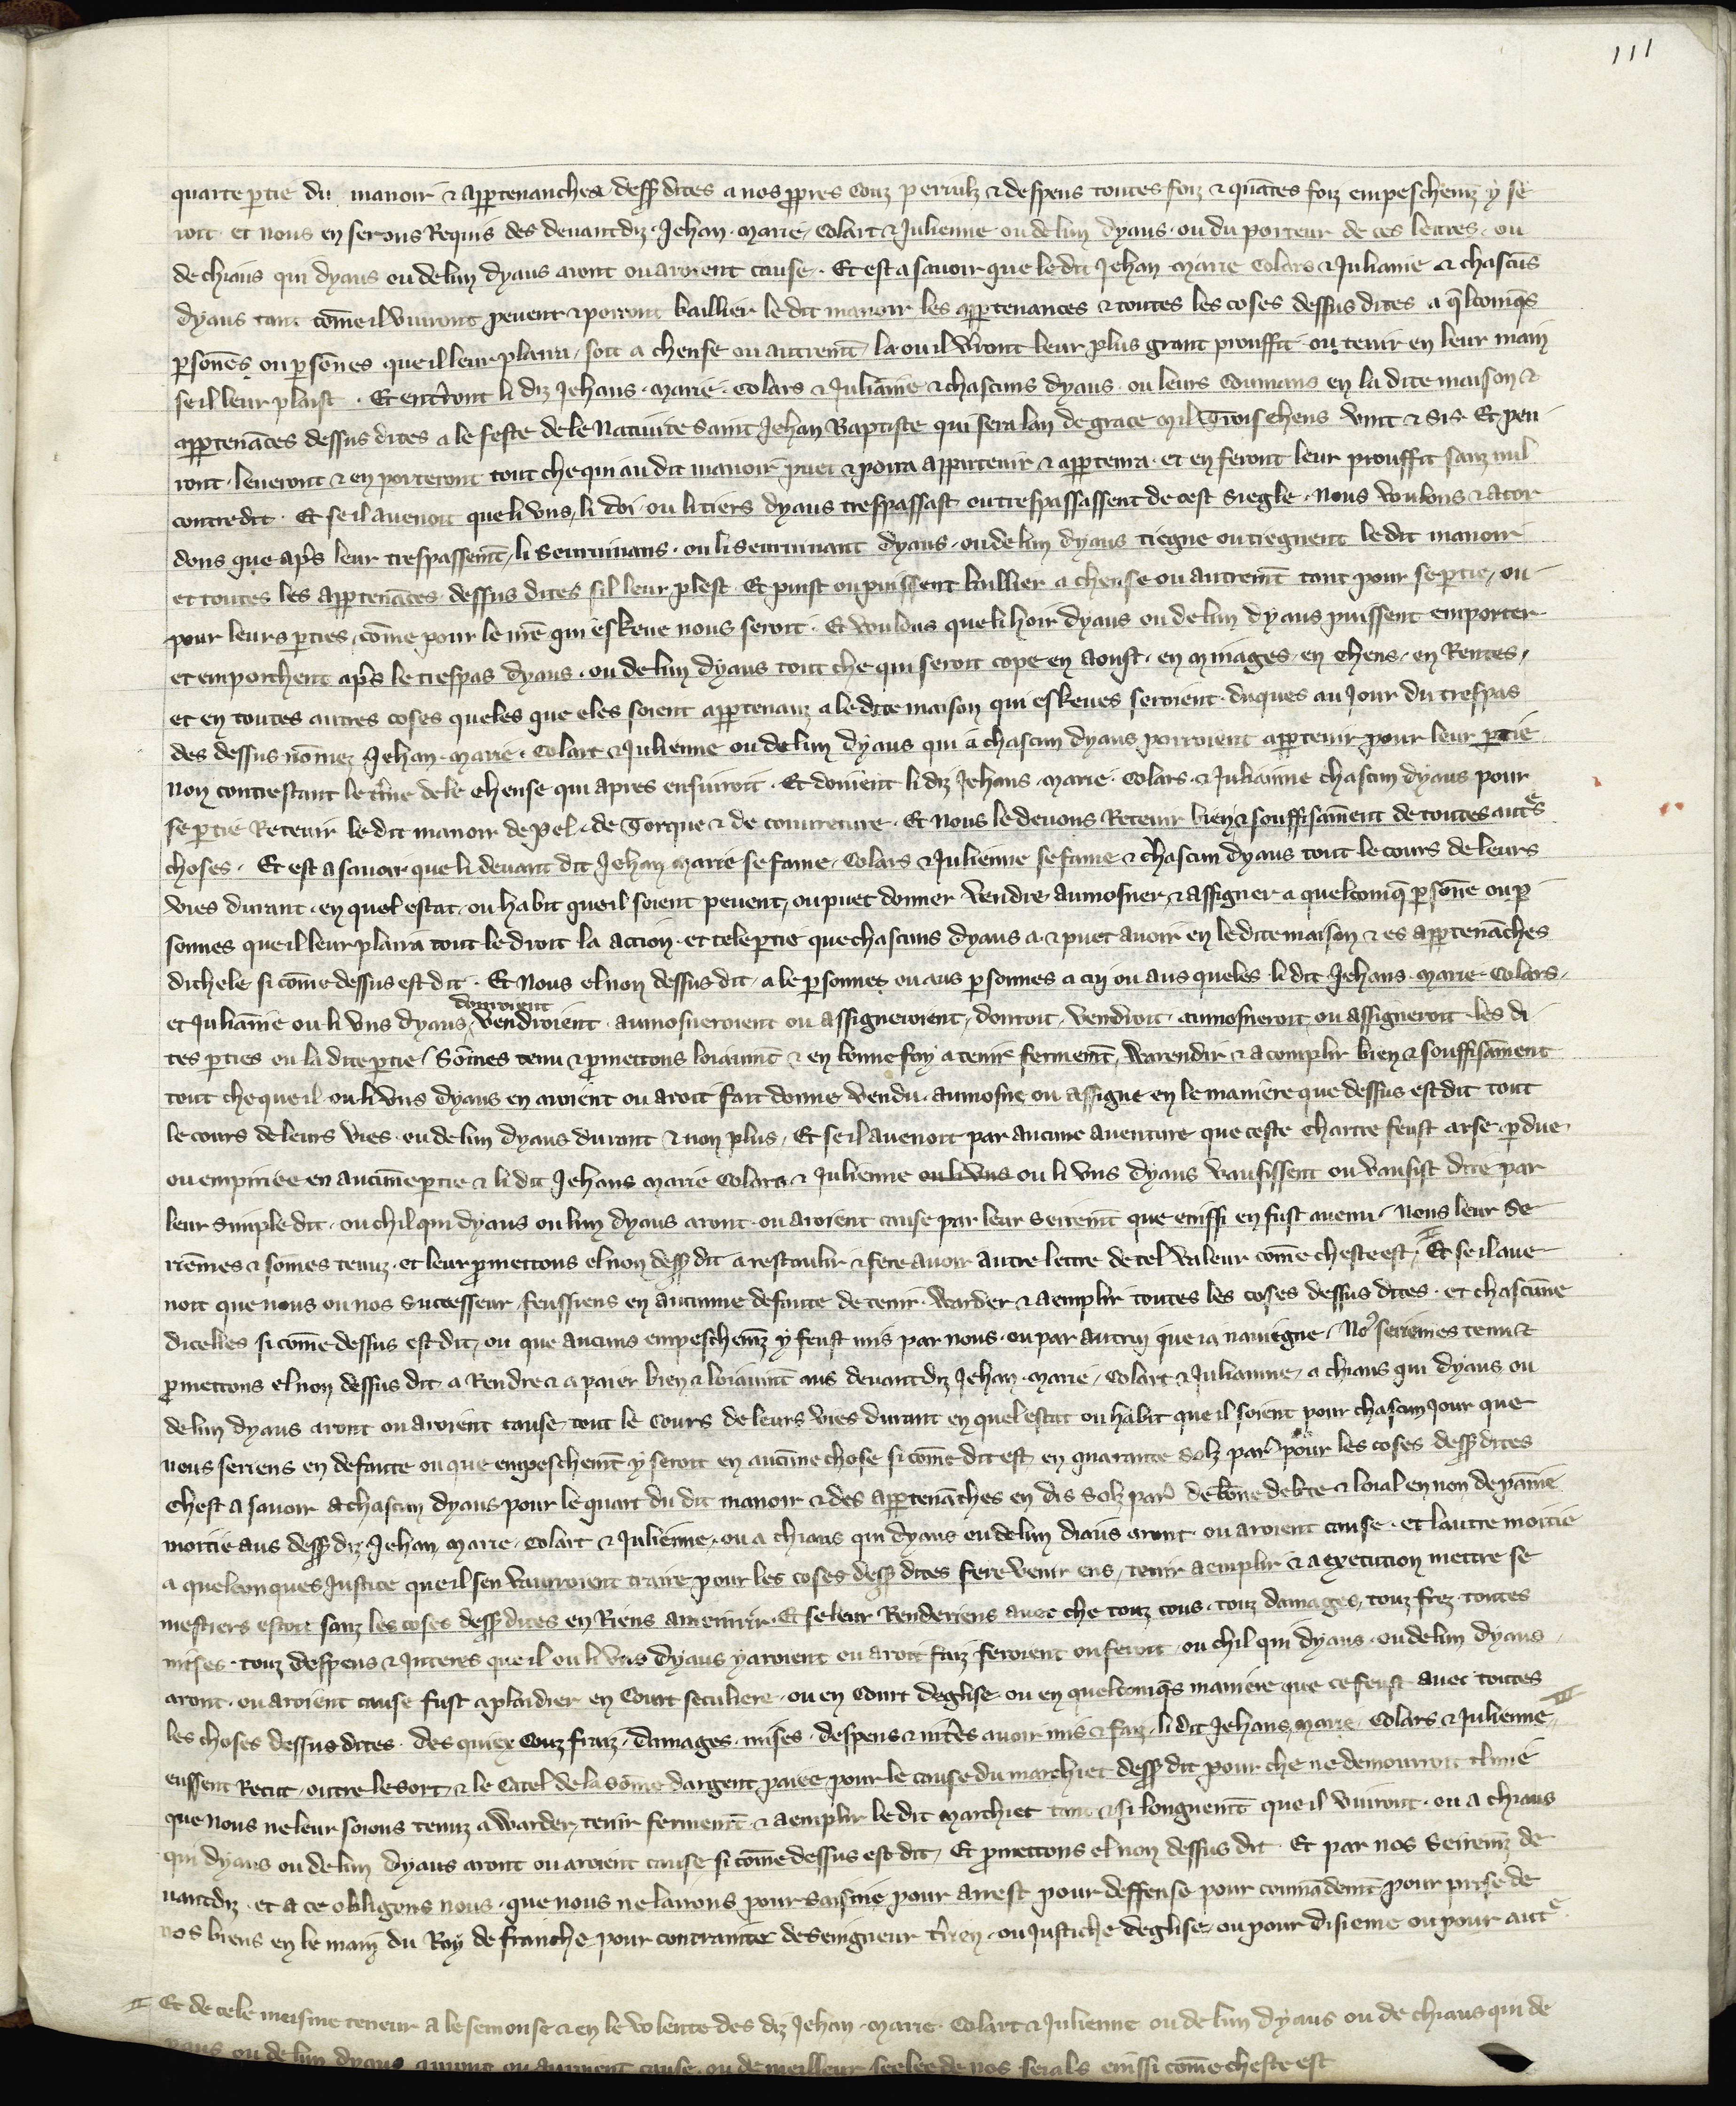 111
quarte ptie du manoir & apptenanches dess dites a nos ppres couz perriulz & despens toutes foiz & quātes foiz empeschemz y se
roit et nous en serons Requis des deuantdiz Jehan . Marie . Colart & Julienne ou de lun dyaus . ou du porteur de ces lectres . ou
de chiaus qui dyaus ou de lun dyaus aront ou aroient cause . Et est a sauoir que le dit Jehan Marie Colars & Julianne & chascūs
dyaus tant cōme il viuront peuent & porront baillier le dit manoir les apptenances & toutes les coses dessus dites a qlconqs
psones ou psōnes que il leur plaira / soit a chense ou autremt / la ou il vront leur plus grant prouffit ou tenir en leur main
se il leur plaist . Et entront li diz Jehans . Marie . Colars & Julianne & chascuns dyaus . ou leurs Coumans en la dite maison &
apptenāces dessus dites a le feste de le Natiuite saint Jehan Baptiste qui sera lan de grace mil Trois chens vint & sis . Et pen
ront . leueront & en porteront tout che qui au dit manoir puet & porra appartenir & apptenra . et en feront leur prouffit sanz nul
contredit . Et se il auenoit que li vns / li doi . ou li tiers dyaus trespassast ou trespassassent de cest siegle . Nous voulons & acor
dons que aps leur trespassemt / li seuruiuans . ou li seuruiuant dyaus . ou de lun dyaus tiegne ou tiegnent le dit manoir
et toutes les apptenāces dessus dites sil leur plest . Et puist ou puissent baillier a chense ou autremt tant pour se ptie / ou
pour leurs pties / cōme pour le nre qui eskeue nous seroit . Et voulons que li hoir dyaus ou de lun dyaus puissent emporter
et emporchent aps le trespas dyaus . ou de lun dyaus tout che qui seroit cope en aoust . en Ainages . en chens . en Rentes /
et en toutes autres coses queles que eles soient apptenanz a le dite maison qui eskeues seroient . duques au Jour du trespas
des dessus nōmez Jehan . Marie . Colart & Julienne ou de lun dyaus qui a chascun dyaus porroient apptenir pour leur ptie
Non contrestant le tme de le chense qui apres ensuiroit . Et doiuent li diz Jehans . Marie . Colars . & Julianne chascun dyaus pour
se ptie Retenir le dit manoir de pel . de Torque & de couureture . Et nous le deuons Retenir bien & souffisāment de toutes autes
choses . Et est a sauoir que li deuant dit Jehan Marie se fame . Colars & Julienne se fame & chascun dyaus tout le cours de leurs
vies durant . en quel estat . ou habit que il soient peuent / ou puet donner vendre aumosner & assigner a quelconq psone ou p
sonnes que il leur plaira tout le droit la action . et tele ptie que chascuns dyaus a & puet auoir en le dite maison & es apptenāches
dichele si cōme dessus est dit . Et Nous el non dessus dit . a le psonnes ou aus psonnes a cui ou aus queles li dit Jehans . Marie . Colars .
et Juliānie ou li vns dyaus / donroient vendroient . aumosneroient ou assigneroient / donroit . vendroit . aumosneroit ou assigneroit les di
tes pties ou la dite ptie / Sōmes tenu & pmettons loiaumt & en bonne foy a tenir fermemt / Warendir & a complir bien & souffisāment
tout che que il ou li vns dyaus en aroient ou aroit fait donne vendu . aumosne ou assigne en le maniere que dessus est dit tout
le cours de leurs vies . ou de lun dyaus durant & non plus . Et se il auenoit par aucune auenture que ceste chartre feust arse . pdue
ou empiriee en aucune ptie & li dit Jehans Marie Colars & Julienne ou li vns ou li vns dyaus vausissent ou vausist dire par
leur simple dit . ou chil qui dyaus ou lun dyaus aront . ou aroient cause par leur seiremt que einssi en fust auenu . Nous leur se
riēmes & sōmes tenuz . et leur pmettons el non dess dit a restaulir & fere auoir autre lettre de tel valeur cōme cheste est . II Et se il aue
noit que nous ou nos successeur . feussiens en aucune defaute de tenir . Warder & aemplir toutes les coses dessus dites . et chascune
dicelles si cōme dessus est dit . ou que aucuns empeschemz y feust mis par nous . ou par autrui que ia nauiegne . No9 seriemes tenu &
pmettons el non dessus dit . a Rendre & a paier bien & loiaumt aus deuantdiz Jehan . Marie . Colart & Julianne . a chiaus qui dyaus ou
de lun dyaus aront ou aroient cause . tout le cours de leurs vies durant en quel estat ou habit que il soient pour chascun Jour que
nous seriens en defaute ou que empeschemt y seroit en aucune chose si cōme dit est en quarante solz par pour les coses dess dites
Chest a sauoir a chascun dyaus pour le quart du dit manoir & des apptenāches en dis solz par de bōne debte & loial en non de painne
moitie aus dess diz Jehan Marie . Colart & Julienne . ou a chiaus qui dyaus ou de lun diaus aront . ou aroient cause . et lautre moitie
a quelconques Justice que il sen vaurroient traire pour les coses dess dites fere venir ens / tenir aemplir & a execution mettre se
mestiers estoit sanz les coses dess dites en Riens amenrir . Et se leur Renderiens auec che touz cous . touz damages . touz frez . toutes
mises . touz despens & Interes que il ou li vns dyaus y aroient ou aroit faiz feroient ou feroit . ou chil qui dyaus . ou de lun dyaus .
aront . ou aroient cause fust a plaidier en Court seculiere . ou en Court deglise . ou en quelconqs maniere que ce feust auec toutes
les choses dessus dites . Des quiex Couz fraiz . damages . mises . despens & intes auoir mis & faiz . li dit Jehans Marie . Colars & Julienne . III
eussent Recut . outre le sort . & le Catel de la sōme dargent paiee pour le cause du marchiet dess dit pour che ne demourroit il mie
que nous ne leur soions tenuz a Warder / tenir fermemt & aemplir le dit Marchiet tant & si longuemt que il viuront . ou a chiaus
qui dyaus ou de lun dyaus aront ou aroient cause si cōme dessus est dit . Et pmettons el non dessus dit . Et par nos Seiremz de
uantdiz . et a ce obligons nous . que nous ne lairons pour saisine pour arrest pour deffense pour coumādemt pour prise de
nos biens en le main du Roy de franche pour contrainte de seingneur trien . ou Justiche deglise . ou pour disieme ou pour aute
II Et de cele meisme teneur a le semonse & en le volente des diz Jehan . Marie . Colart & Julienne ou de lun dyaus ou de chiaus qui de
yaus ou de lun dyaus aront ou auroient cause . ou de meilleur seelee de nos seials einssi cōme cheste est